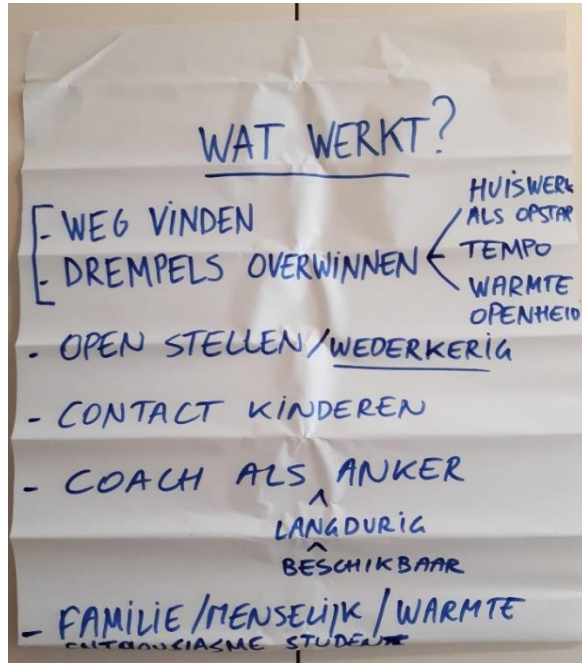 WAT WERKT?
- WEG VINDEN
- DREMPELS OVERWINNEN
HUISWERK
ALS OPSTAP
TEMPO
WARMTE
OPENHEID
- OPEN STELLEN/WEDERKERIG
- CONTACT KINDEREN
- COACH ALS ANKER
LANGDURIG
BESCHIKBAAR
- FAMILIE/MENSELIJK/WARMTE
ENTHOUSIASME STUDENT